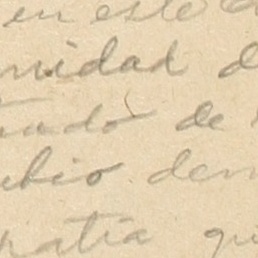 en este
nidad d
tado de
ubio dem
patia qu